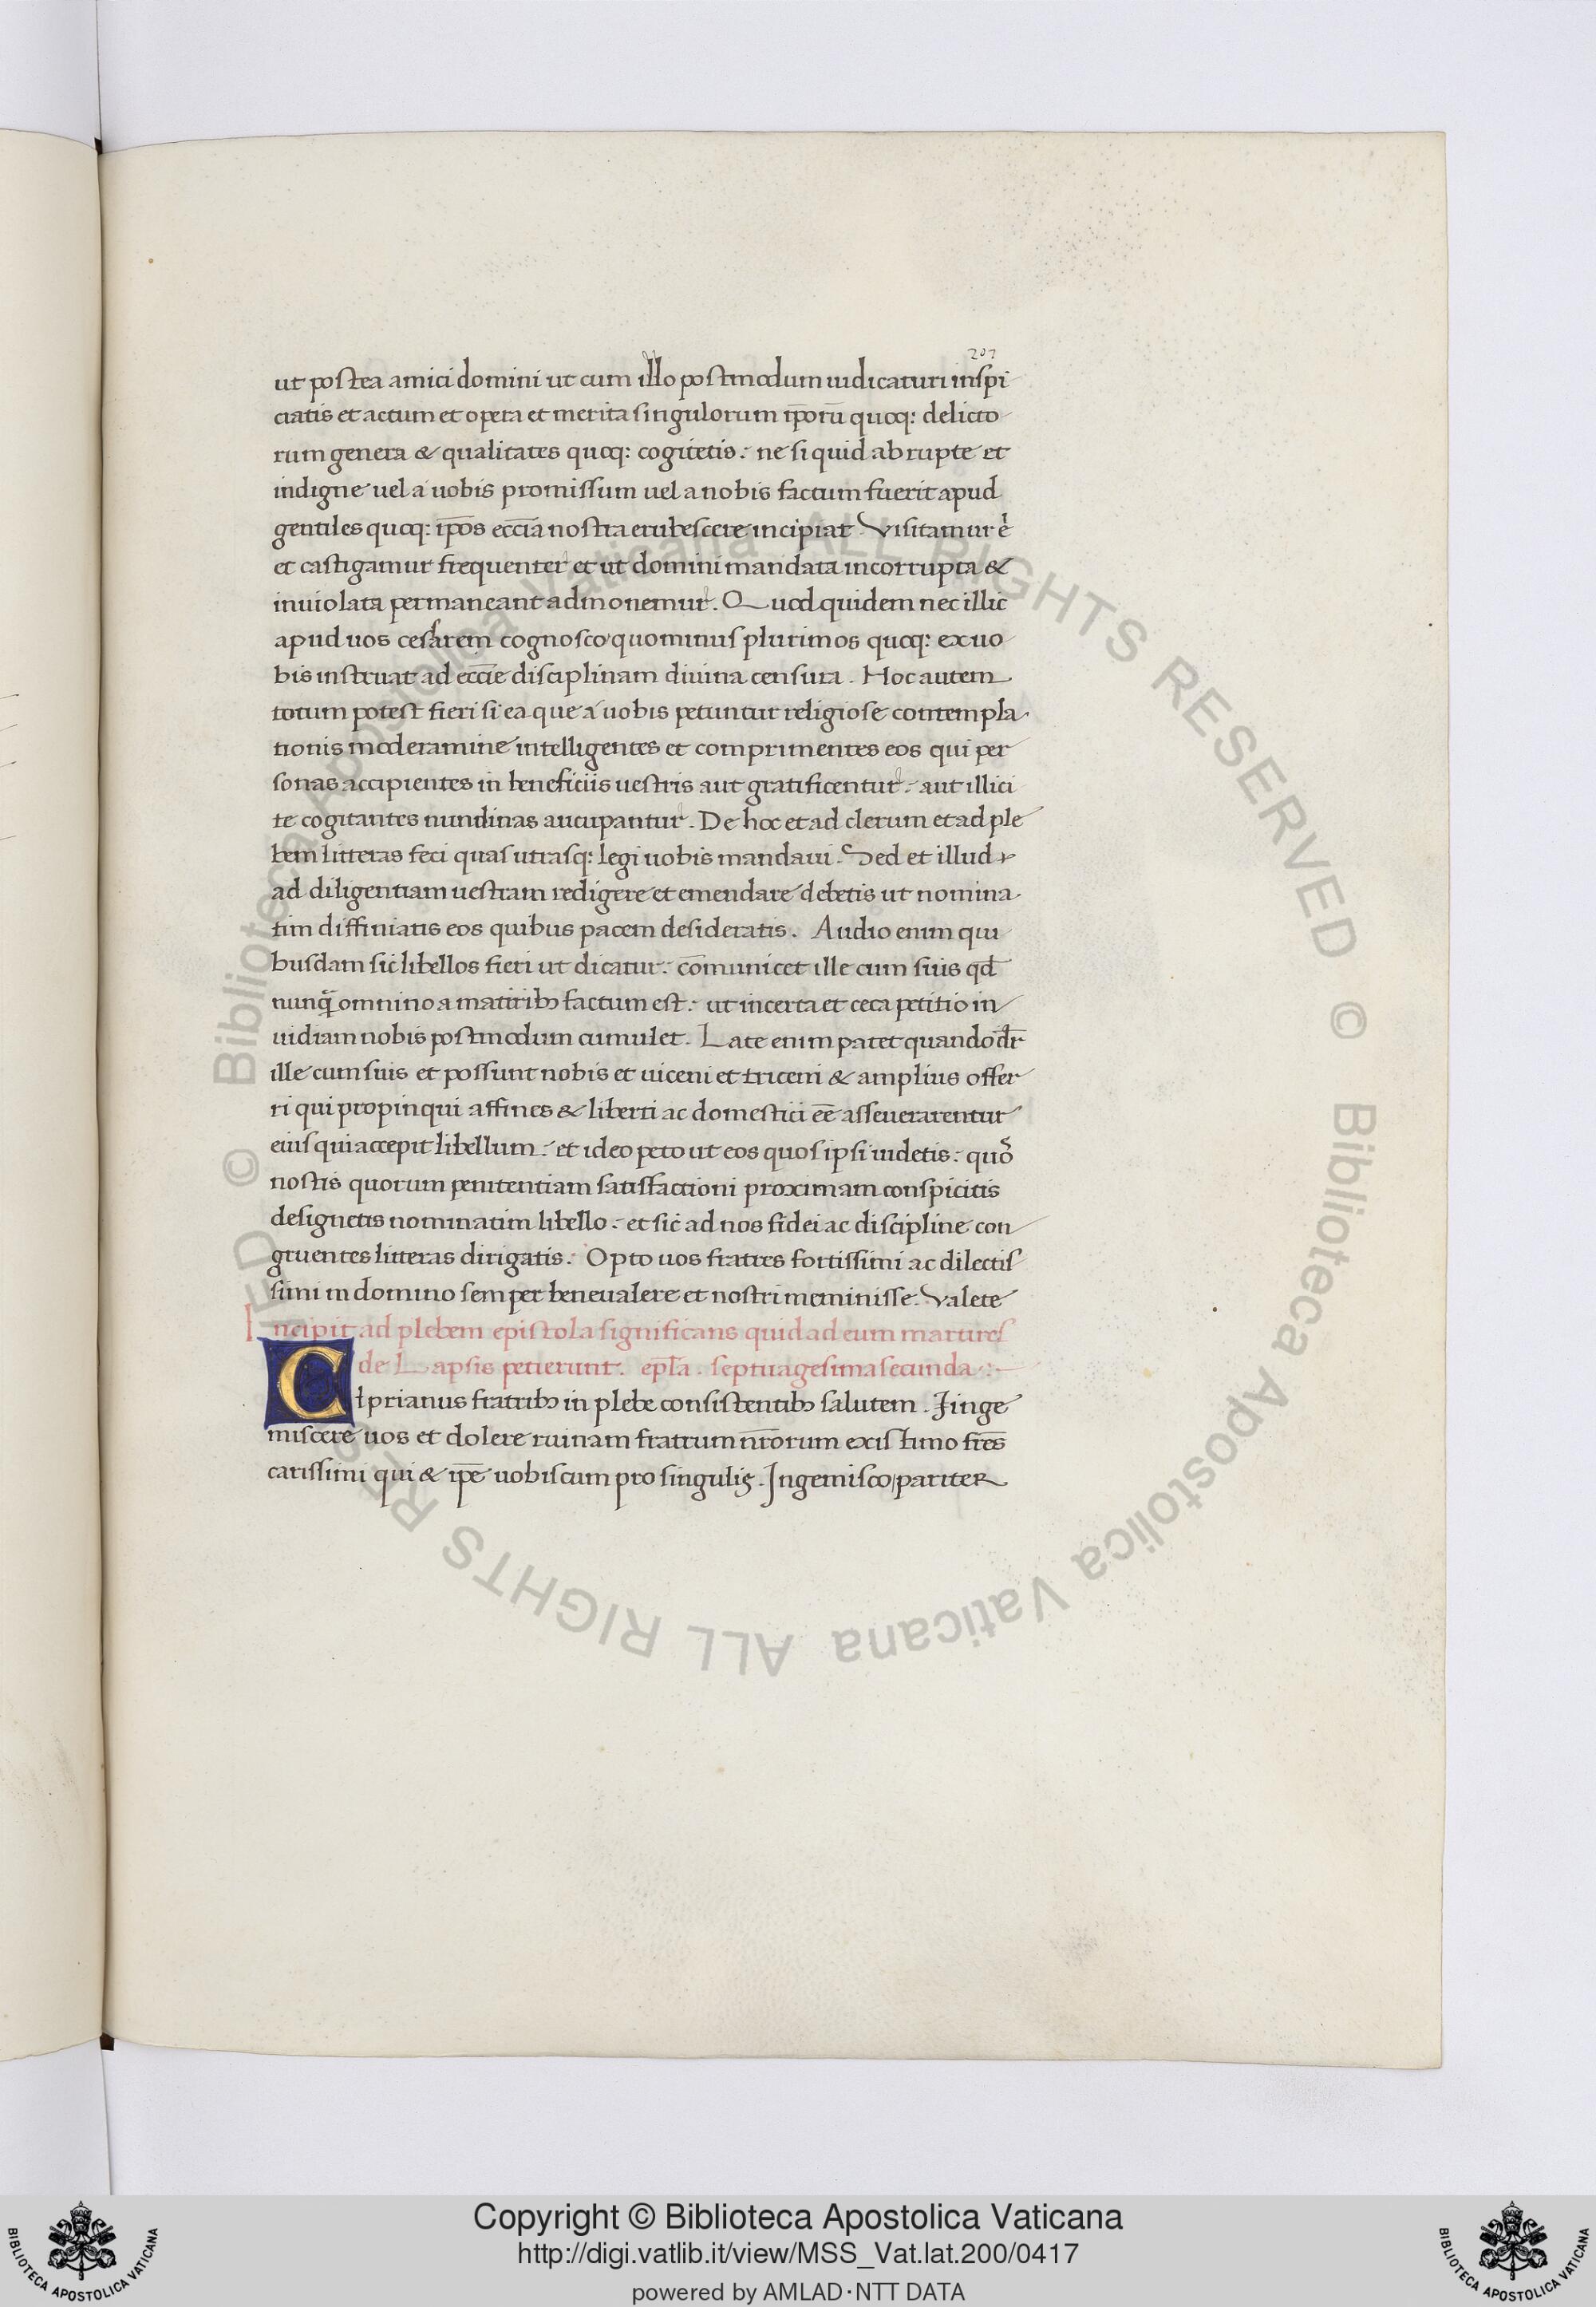 207
ut postea amici domini ut cum illo postmodum iudicaturi inspi
ciatis et actum et opera et merita singulorum ip̄orū quoq: delicto
rum genera & qualitates quoq: cogitetis: ne si quid abrupte et
indigne uel a uobis promissum uel a nobis factum fuerit apud
gentiles quoq: ip̄os ecc̄ia nostra erubescere incipiat Visitamur
et castigamur frequenter et ut domini mandata incorrupta &
inuiolata permaneant admonemur. Quod quidem nec illic
apud uos cessarem cognosco quominus plurimos quoq: ex uo
bis instruat ad ecc̄ie disciplinam diuina censura. Hoc autem
totum potest fieri si ea que a uobis petuntur religiose contempla
tionis moderamine intelligentes et comprimentes eos qui per
sonas accipientes in beneficiis uestris aut gratificentur: aut illici
te cogitantes nundinas aucupantur. De hoc et ad clerum et ad ple
bem litteras feci quas utrasq: legi uobis mandaui. Sed et illud
ad diligentiam uestram redigere et emendare debetis ut nomina
tim diffiniatis eos quibus pacem desideratis. Audio enim qui
busdam sic libellos fieri ut dicatur: cōmunicet ille cum suis qđ
nunq̄ omnino a martirib; factum est: ut incerta et ceca petitio in
uidiam nobis postmodum cumulet. Late enim patet quando dr̄
ille cum suis et possunt nobis et uiceni et triceni & amplius offer
ri qui propinqui affines & liberti ac domestici eē asseuerarentur
eius qui accepit libellum: et ideo peto ut eos quos ipsi uidetis: quō
nostis quorum penitentiam satisfactioni proximam conspicitis
designetis nominatim libello: et sic ad nos fidei ac discipline con
gruentes litteras dirigatis. Opto uos fratres fortissimi ac dilectis
simi in domino semper bene ualere et nostri meminisse. Valete
Incipit ad plebem epistola significans quid ad eum martires
de Lapsis petierunt. ep̄la. septuagesima secunda
Ciprianus fratrib; in plebe consistentib; salutem. Iinge
miscere uos et dolere ruinam fratrum nr̄orum existimo fr̄es
carissimi qui & ip̄e uobiscum pro singulis. Ingemisco pariter
© Biblioteca Apostolica Vaticana ALL RIGHTS RESERVED © Biblioteca Apostolica Vaticana ALL RIGHTS RESERVED
Copyright © Biblioteca Apostolica Vaticana
http://digi.vatlib.it/view/MSS_Vat.lat.200/0417
powered by AMLAD·NTT DATA
BIBLIOTECA APOSTOLICA VATICANA
BIBLIOTECA APOSTOLICA VATICANA